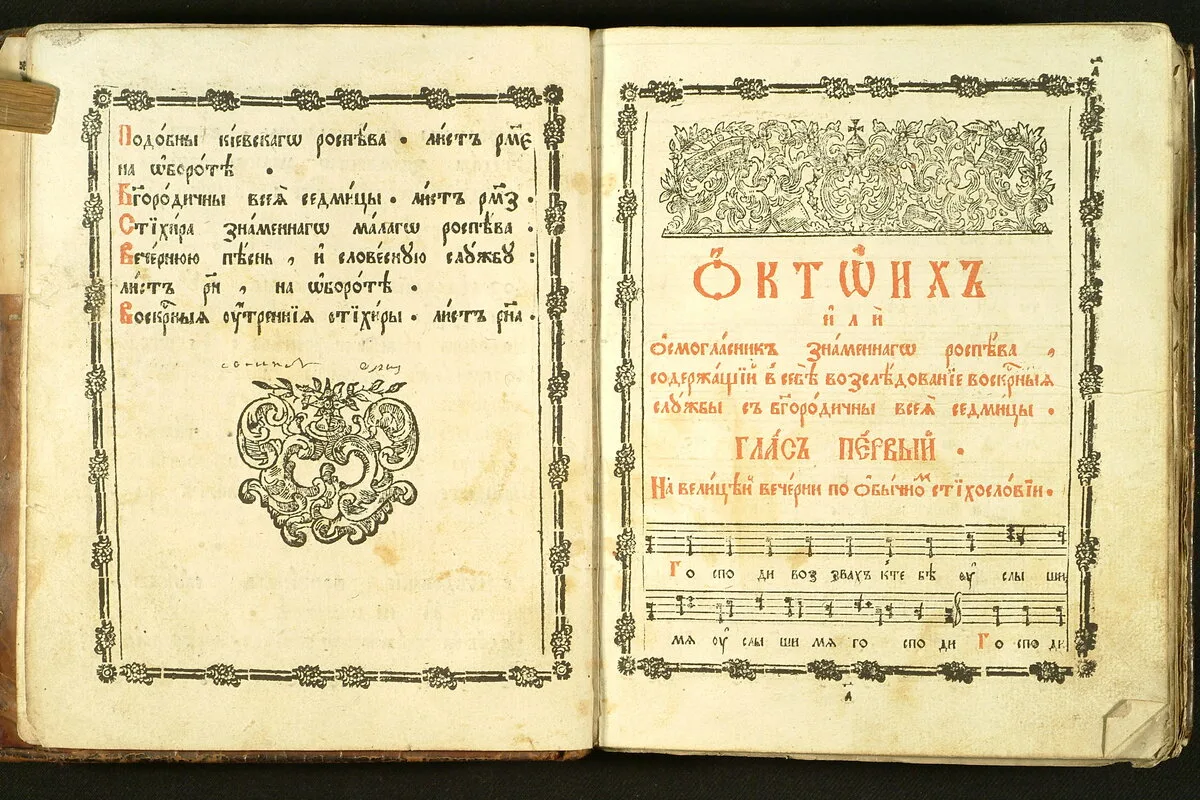 Подо́бны кі́евскагѡ роспѣ́ва . ли́стъ рм҃є
на ѡ҆боро́тѣ .
Бг҃оро́дичны всеѧ̀ седми́цы . ли́стъ рм҃з .
Стїхи́ра зна́меннагѡ ма́лагѡ роспѣ́ва .
Вече́рнюю пѣ́снь , и҆ слове́сную слу́жбу :
ли́стъ рн҃ , на ѡ҆боро́тѣ .
Воскр҇ныѧ ᲂу҆́треннїѧ стїхи́ры . ли́стъ рн҃а .
а҃
Ѻ҆КТѠ́ИХЪ
и҆лѝ
Ѻ҆смогла́сникъ зна́меннагѡ роспѣ́ва ,
содержа́щїй в̾ себѣ̀ возслѣ́дованїе воскр҇ныѧ
слу́жбы съ бг҃оро́дичны всеѧ̀ седми́цы .
ГЛА́СЪ ПЕ́РВЫЙ .
На вели́цѣй вече́рни по ѻ҆бы́чномъ стїхосло́вїи .
Го спо ди воз звахъ к̾те бѣ ᲂу҆ слы ши
мѧ ᲂу҆ слы ши мѧ го спо ди Го спо ди
а҃